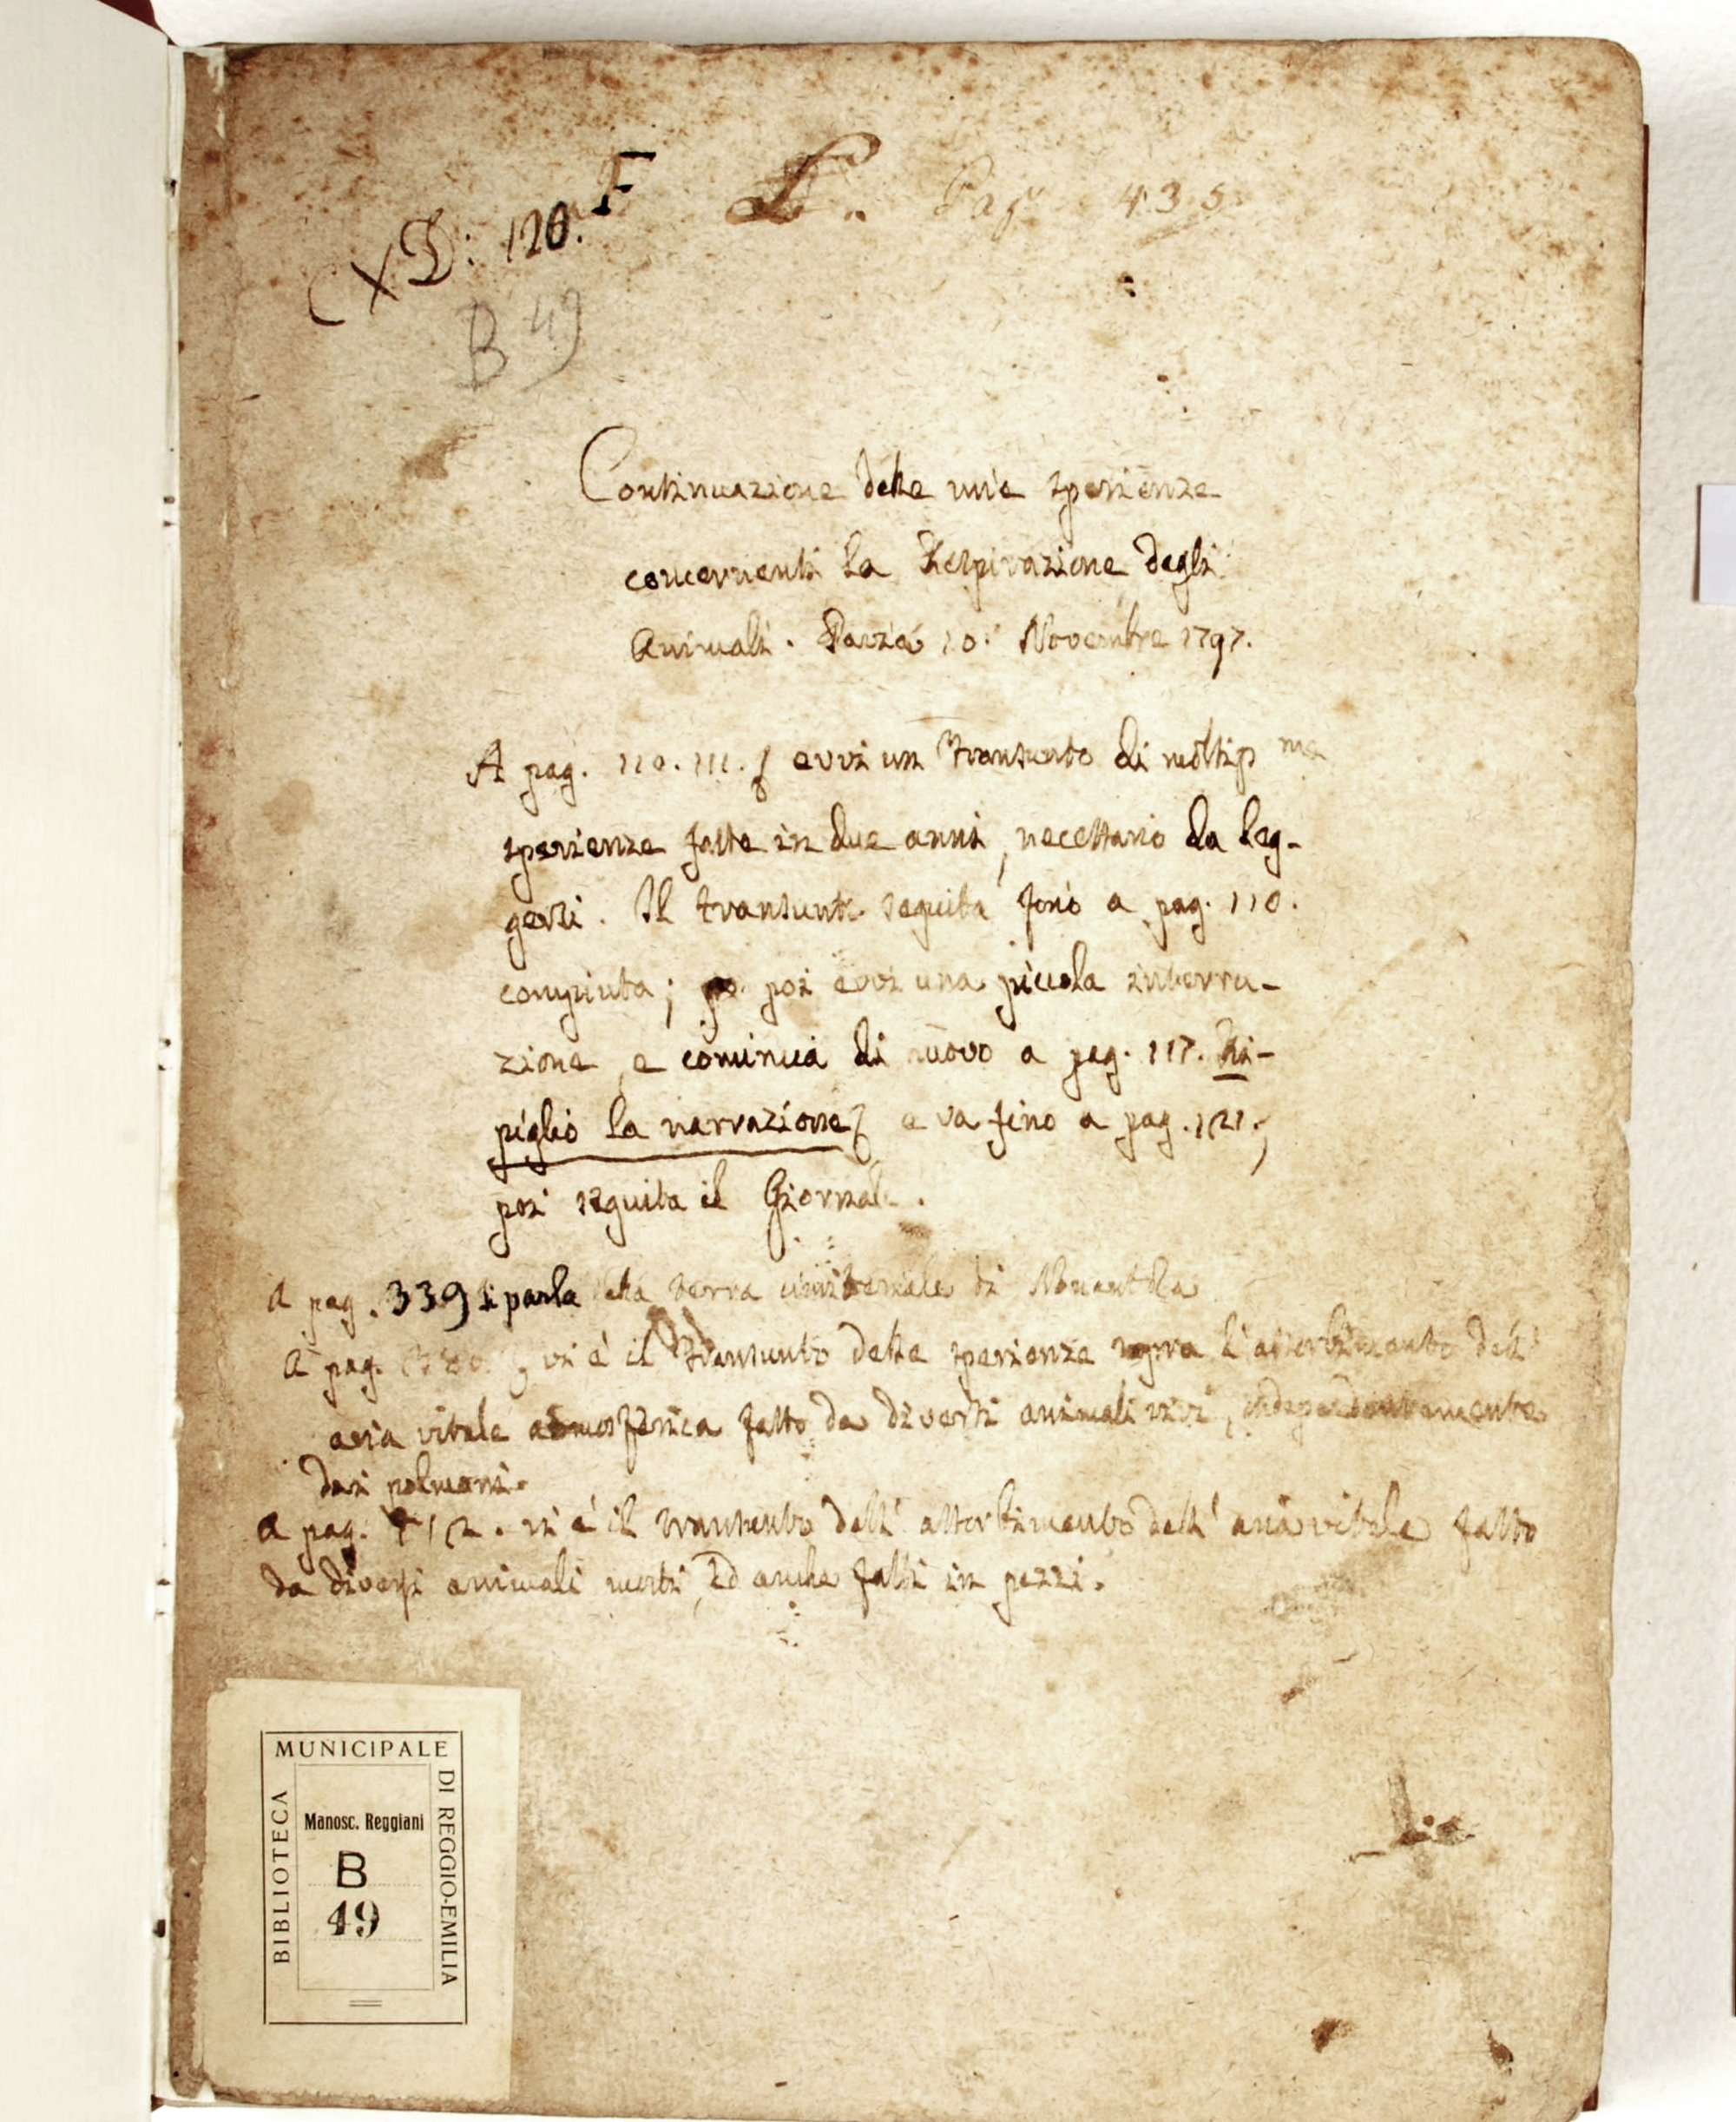 XD: 120. F
Pag 435
B 49
Continuazione delle mie sperienze
concernenti la Respirazione degli
Animali. Pavia 10. Novembre 1797.
A pag. 110. 111. evvi un Transunto di moltiss me
sperienze fatte in due anni, necessario da leg-
gersi. Il transunto seguita fino a pag. 110.
compiuta; poi evvi una piccola interru-
zione, e comincia di nuovo a pag. 117. Ri-
piglio la narrazione e va fino a pag. 121.;
poi seguita il Giornale.
A pag. 339 si parla della terra cimiteriale di Nonantola
A pag. vi è il Transunto delle sperienze sopra l'assorbimento dell'
aria vitale atmosferica fatto da diversi animali vivi, independentemente
dai polmoni.
A pag. vi è il transunto dell' assorbimento dell' aria vitale fatto
da diversi animali morti, ed anche fatti in pezzi.
BIBLIOTECA MUNICIPALE DI REGGIO-EMILIA
Manosc. Reggiani
B
49